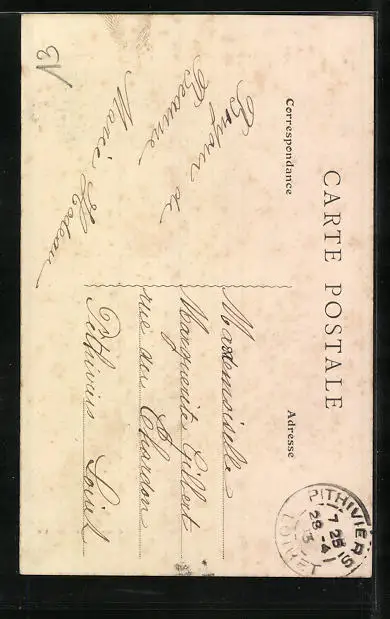 CARTE POSTALE
Correspondance
Adresse
Bonjour de
Beaune
Marie
Mademoiselle
Marguerite Gilbert
rue du Chardon
Pithiviers Loiret
PITHIVIERS
7 25
29 -4
LOIRET